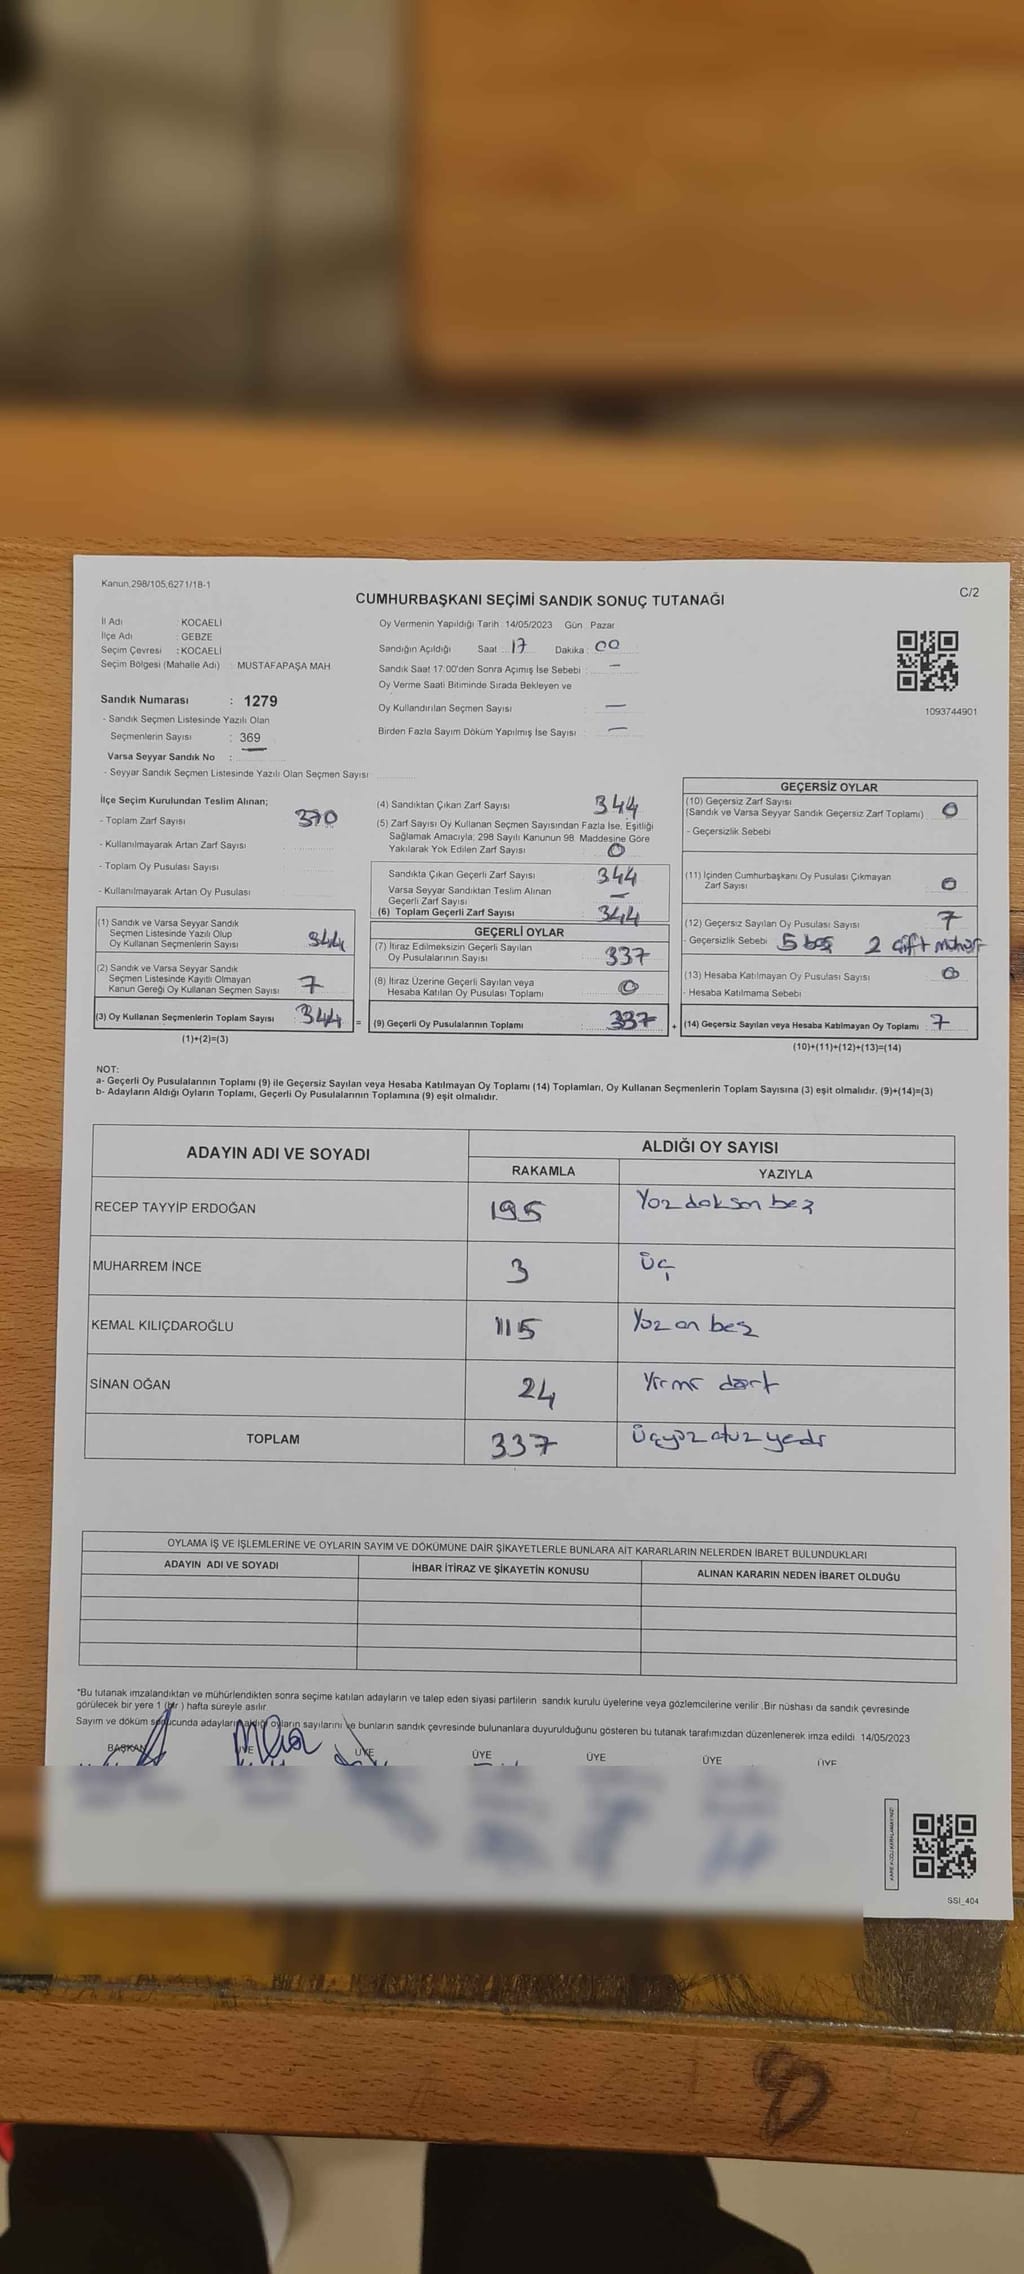 Kanun,298/105,6271/18-1
C/2
CUMHURBAŞKANI SEÇİMİ SANDIK SONUÇ TUTANAĞI
İl Adı : KOCAELİ
İlçe Adı : GEBZE
Seçim Çevresi : KOCAELİ
Seçim Bölgesi (Mahalle Adı) : MUSTAFAPAŞA MAH
Sandık Numarası : 1279
- Sandık Seçmen Listesinde Yazılı Olan
Seçmenlerin Sayısı : 369
Varsa Seyyar Sandık No :
- Seyyar Sandık Seçmen Listesinde Yazılı Olan Seçmen Sayısı
Oy Vermenin Yapıldığı Tarih 14/05/2023 Gün Pazar
Sandığın Açıldığı Saat 17 Dakika 00
Sandık Saat 17:00'den Sonra Açımış İse Sebebi : —
Oy Verme Saati Bitiminde Sırada Bekleyen ve
Oy Kullandırılan Seçmen Sayısı : —
Birden Fazla Sayım Döküm Yapılmış İse Sayısı : —
1093744901
İlçe Seçim Kurulundan Teslim Alınan;
- Toplam Zarf Sayısı 370
- Kullanılmayarak Artan Zarf Sayısı
- Toplam Oy Pusulası Sayısı
- Kullanılmayarak Artan Oy Pusulası
(1) Sandık ve Varsa Seyyar Sandık
Seçmen Listesinde Yazılı Olup
Oy Kullanan Seçmenlerin Sayısı 344
(2) Sandık ve Varsa Seyyar Sandık
Seçmen Listesinde Kayıtlı Olmayan
Kanun Gereği Oy Kullanan Seçmen Sayısı 7
(3) Oy Kullanan Seçmenlerin Toplam Sayısı 344 =
(1)+(2)=(3)
(4) Sandıktan Çıkan Zarf Sayısı 344
(5) Zarf Sayısı Oy Kullanan Seçmen Sayısından Fazla İse, Eşitliği
Sağlamak Amacıyla; 298 Sayılı Kanunun 98. Maddesine Göre
Yakılarak Yok Edilen Zarf Sayısı 0
Sandıkta Çıkan Geçerli Zarf Sayısı 344
Varsa Seyyar Sandıktan Teslim Alınan
Geçerli Zarf Sayısı —
(6) Toplam Geçerli Zarf Sayısı 344
GEÇERLİ OYLAR
(7) İtiraz Edilmeksizin Geçerli Sayılan
Oy Pusulalarının Sayısı 337
(8) İtiraz Üzerine Geçerli Sayılan veya
Hesaba Katılan Oy Pusulası Toplamı 0
(9) Geçerli Oy Pusulalarının Toplamı 337 +
GEÇERSİZ OYLAR
(10) Geçersiz Zarf Sayısı
(Sandık ve Varsa Seyyar Sandık Geçersiz Zarf Toplamı) 0
- Geçersizlik Sebebi
(11) İçinden Cumhurbaşkanı Oy Pusulası Çıkmayan
Zarf Sayısı 0
(12) Geçersiz Sayılan Oy Pusulası Sayısı 7
- Geçersizlik Sebebi 5 boş 2 çift mühür
(13) Hesaba Katılmayan Oy Pusulası Sayısı 0
- Hesaba Katılmama Sebebi
(14) Geçersiz Sayılan veya Hesaba Katılmayan Oy Toplamı 7
(10)+(11)+(12)+(13)=(14)
NOT:
a- Geçerli Oy Pusulalarının Toplamı (9) ile Geçersiz Sayılan veya Hesaba Katılmayan Oy Toplamı (14) Toplamları, Oy Kullanan Seçmenlerin Toplam Sayısına (3) eşit olmalıdır. (9)+(14)=(3)
b- Adayların Aldığı Oyların Toplamı, Geçerli Oy Pusulalarının Toplamına (9) eşit olmalıdır.
ADAYIN ADI VE SOYADI ALDIĞI OY SAYISI
RAKAMLA YAZIYLA
RECEP TAYYİP ERDOĞAN 195 Yüz doksan beş
MUHARREM İNCE 3 üç
KEMAL KILIÇDAROĞLU 115 Yüz on beş
SİNAN OĞAN 24 Yirmi dört
TOPLAM 337 üçyüz otuz yedi
OYLAMA İŞ VE İŞLEMLERİNE VE OYLARIN SAYIM VE DÖKÜMÜNE DAİR ŞİKAYETLERLE BUNLARA AİT KARARLARIN NELERDEN İBARET BULUNDUKLARI
ADAYIN ADI VE SOYADI İHBAR İTİRAZ VE ŞİKAYETİN KONUSU ALINAN KARARIN NEDEN İBARET OLDUĞU
*Bu tutanak imzalandıktan ve mühürlendikten sonra seçime katılan adayların ve talep eden siyasi partilerin sandık kurulu üyelerine veya gözlemcilerine verilir .Bir nüshası da sandık çevresinde
görülecek bir yere 1 (bir ) hafta süreyle asılır.
Sayım ve döküm sonucunda adayların aldığı oyların sayılarını ve bunların sandık çevresinde bulunanlara duyurulduğunu gösteren bu tutanak tarafımızdan düzenlenerek imza edildi. 14/05/2023
BAŞKAN ÜYE ÜYE ÜYE ÜYE ÜYE ÜYE
SSI_404